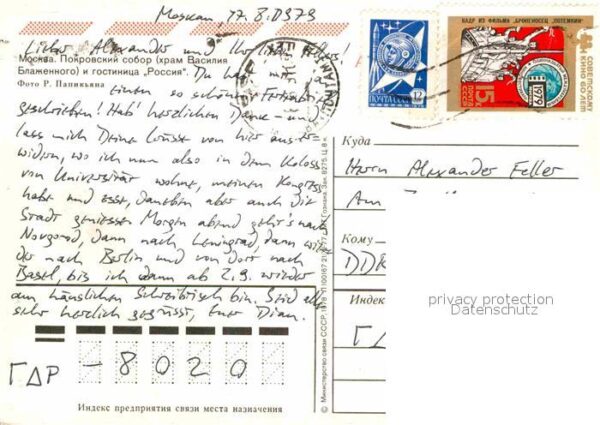 Moskau, 17.8.1979
Lieber Alexander und Ihr lieben Fellers!
Москва. Покровский собор (храм Василия
Блаженного) и гостиница „Россия".
Фото Р. Папикьяна
Du hast mir ja
einen so schönen Ferienbrief
geschrieben! Hab' herzlichen Dank – und
lass mich Deine Grüsse von hier aus er-
widern, wo ich nun also in dem Koloss
von Universität wohne, meinen Kongress
habe und esse, daneben aber auch die
Stadt geniesse. Morgen abend geht's nach
Novgorod, dann nach Leningrad, dann wie-
der nach Berlin und von dort nach
Basel, bis ich dann ab 2.9. wieder
am häuslichen Schreibtisch bin. Seid alle
sehr herzlich gegrüsst, Euer Dian.
ГДР – 8020
Индекс предприятия связи места назначения
© Министерство связи СССР. 1978
Гознака. Зак. 8275. Ц. 8 к.
ПОЧТА СССР
12
КАДР ИЗ ФИЛЬМА „БРОНЕНОСЕЦ „ПОТЕМКИН"
СОВЕТСКОМУ КИНО 60 ЛЕТ
1979
15 к
ПОЧТА СССР
Куда
Herrn Alexander Feller
Am
Кому
DDR
Индекс
ГД
privacy protection
Datenschutz